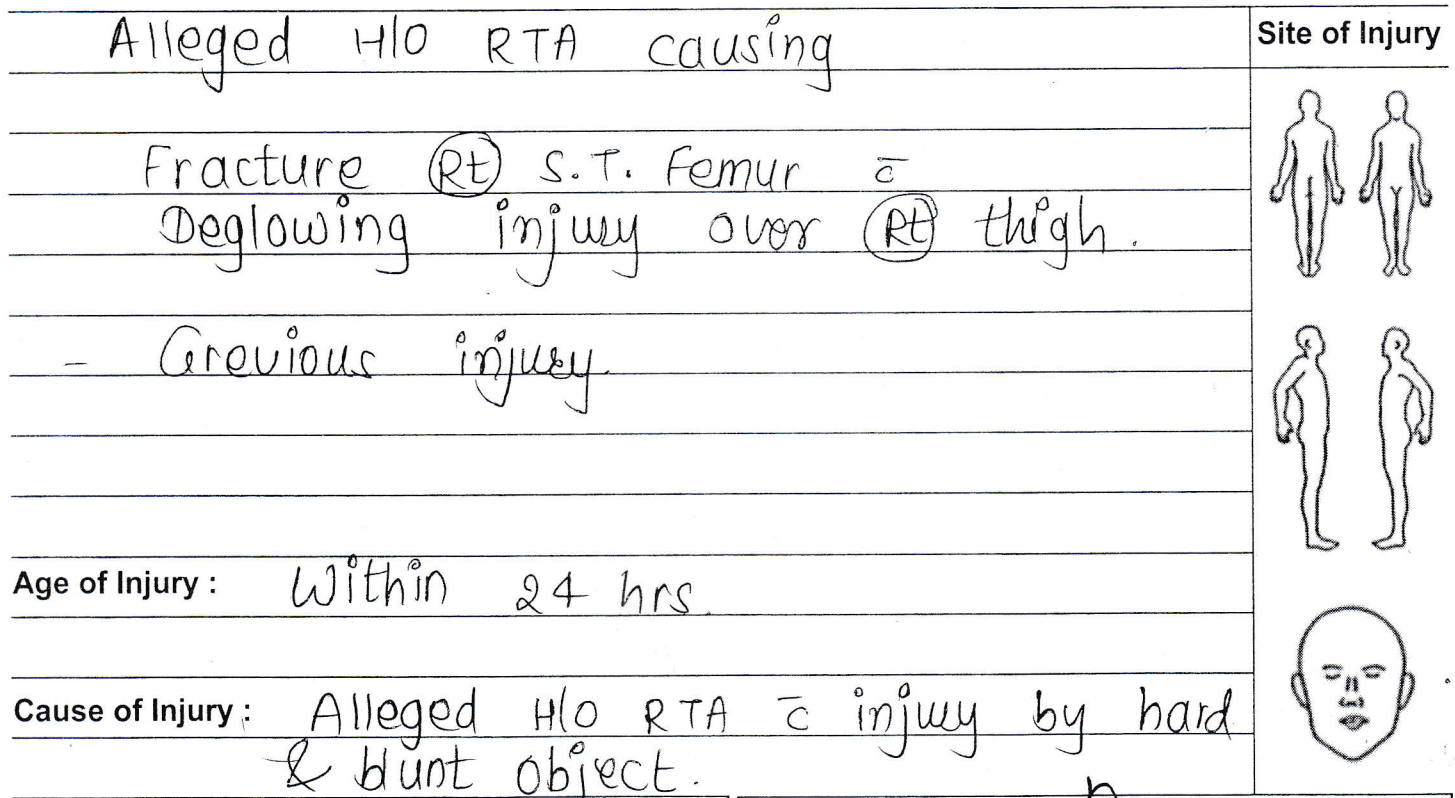 Alleged H/O RTA causing
Site of Injury
Fracture Rt S.T. Femur c̄
Deglowing injury over Rt thigh.
- Grevious injury.
Age of Injury : Within 24 hrs.
Cause of Injury : Alleged H/O RTA c̄ injury by hard
& blunt object.